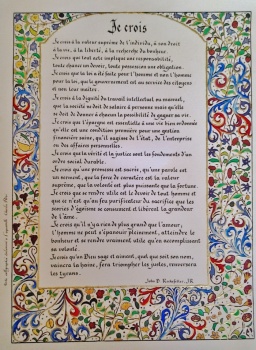 Je crois
Je crois à la valeur suprême de l'individu, à son droit
à la vie, à la liberté, à la recherche du bonheur
Je crois que tout acte implique une responsabilité,
toute chance un devoir, toute possession une obligation.
Je crois que la loi a été faite pour l'homme et non l'homme
pour la loi, que le gouvernement est au service des citoyens
et non leur maître.
Je crois à la dignité du travail intellectuel ou manuel,
que la société ne doit de salaire à personne mais qu'elle
se doit de donner à chacun la possibilité de gagner sa vie.
Je crois que l'épargne est essentielle à une vie bien ordonnée
qu'elle est une condition première pour une gestion
financière saine, qu'il s'agisse de l'état, de l'entreprise
ou des affaires personnelles.
Je crois que la vérité et la justice sont les fondements d'un
ordre social durable.
Je crois qu'une promesse est sacrée, qu'une parole est
un serment, que la force de caractère est la valeur
suprême, que la volonté est plus puissante que la fortune
Je crois que se rendre utile est le devoir de tout homme et
que ce n'est qu'au feu purificateur du sacrifice que les
scories d'égoïsme se consument et libèrent la grandeur
de l'âme.
Je crois qu'il n'y a rien de plus grand que l'amour,
l'homme ne peut s'épanouir pleinement, atteindre le
bonheur et se rendre vraiment utile qu'en accomplissant
sa volonté.
Je crois qu'un Dieu sage et aimant, quel que soit son nom,
vaincra la haine, fera triompher les justes, renversera
les tyrans.
John D. Rockefeller, JR